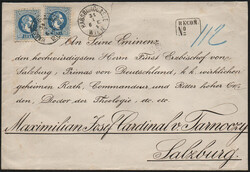 RECOM.
No
112
An Seine Eminenz
den hochwürdigsten Herrn Fürst Erzbischof von
Salzburg, Primas von Deutschland, k.k. wirklichen
geheimen Rath, Commandeur und Ritter hoher
Orden, Doctor der Theologie etc. etc.
Maximilian Josef Cardinal v. Tarnoczy
Salzburg